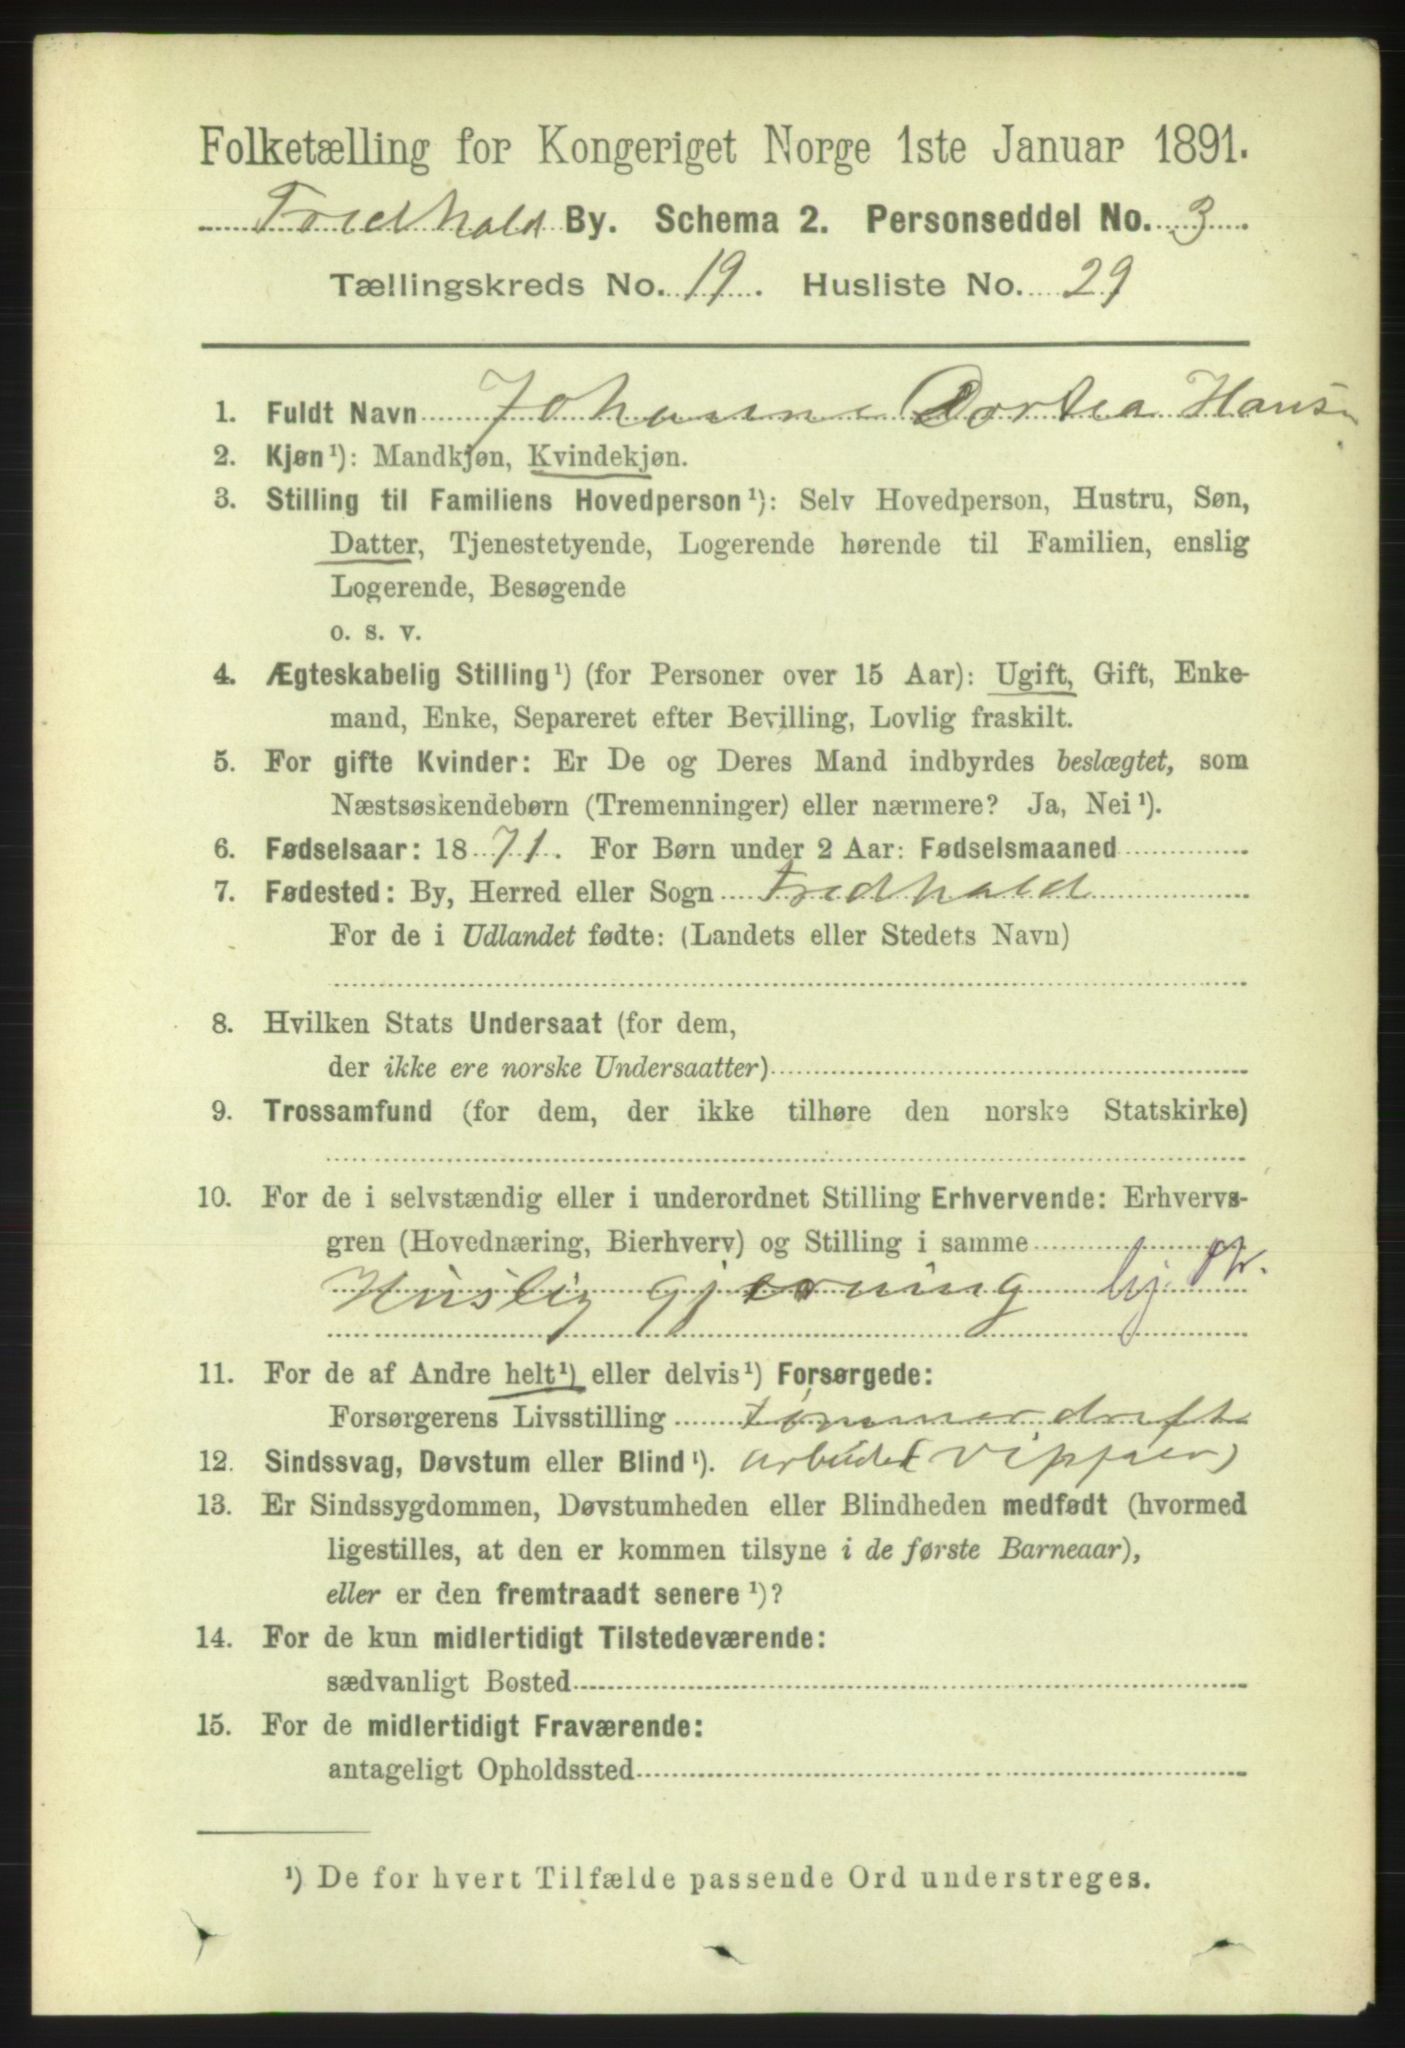 Folketælling for Kongeriget Norge 1ste Januar 1891.
Fredhald By. Schema 2. Personseddel No. 3
Tællingskreds No. 19. Husliste No. 29
1. Fuldt Navn Johanne Dortea Hansen
2. Kjøn¹): Mandkjøn, Kvindekjøn.
3. Stilling til Familiens Hovedperson¹): Selv Hovedperson, Hustru, Søn,
Datter, Tjenestetyende, Logerende hørende til Familien, enslig
Logerende, Besøgende
o. s. v.
4. Ægteskabelig Stilling¹) (for Personer over 15 Aar): Ugift, Gift, Enke-
mand, Enke, Separeret efter Bevilling, Lovlig fraskilt.
5. For gifte Kvinder: Er De og Deres Mand indbyrdes beslægtet, som
Næstsøskendebørn (Tremenninger) eller nærmere? Ja, Nei¹).
6. Fødselsaar: 1871. For Børn under 2 Aar: Fødselsmaaned
7. Fødested: By, Herred eller Sogn Fredhald
For de i Udlandet fødte: (Landets eller Stedets Navn)
8. Hvilken Stats Undersaat (for dem,
der ikke ere norske Undersaatter)
9. Trossamfund (for dem, der ikke tilhøre den norske Statskirke)
10. For de i selvstændig eller i underordnet Stilling Erhvervende: Erhvervs-
gren (Hovednæring, Bierhverv) og Stilling i samme
Huslig gjerning
11. For de af Andre helt¹) eller delvis¹) Forsørgede:
Forsørgerens Livsstilling tømmerdrift
12. Sindssvag, Døvstum eller Blind¹). arbeider
13. Er Sindssygdommen, Døvstumheden eller Blindheden medfødt (hvormed
ligestilles, at den er kommen tilsyne i de første Barneaar),
eller er den fremtraadt senere¹)?
14. For de kun midlertidigt Tilstedeværende:
sædvanligt Bosted
15. For de midlertidigt Fraværende:
antageligt Opholdssted
¹) De for hvert Tilfælde passende Ord understreges.